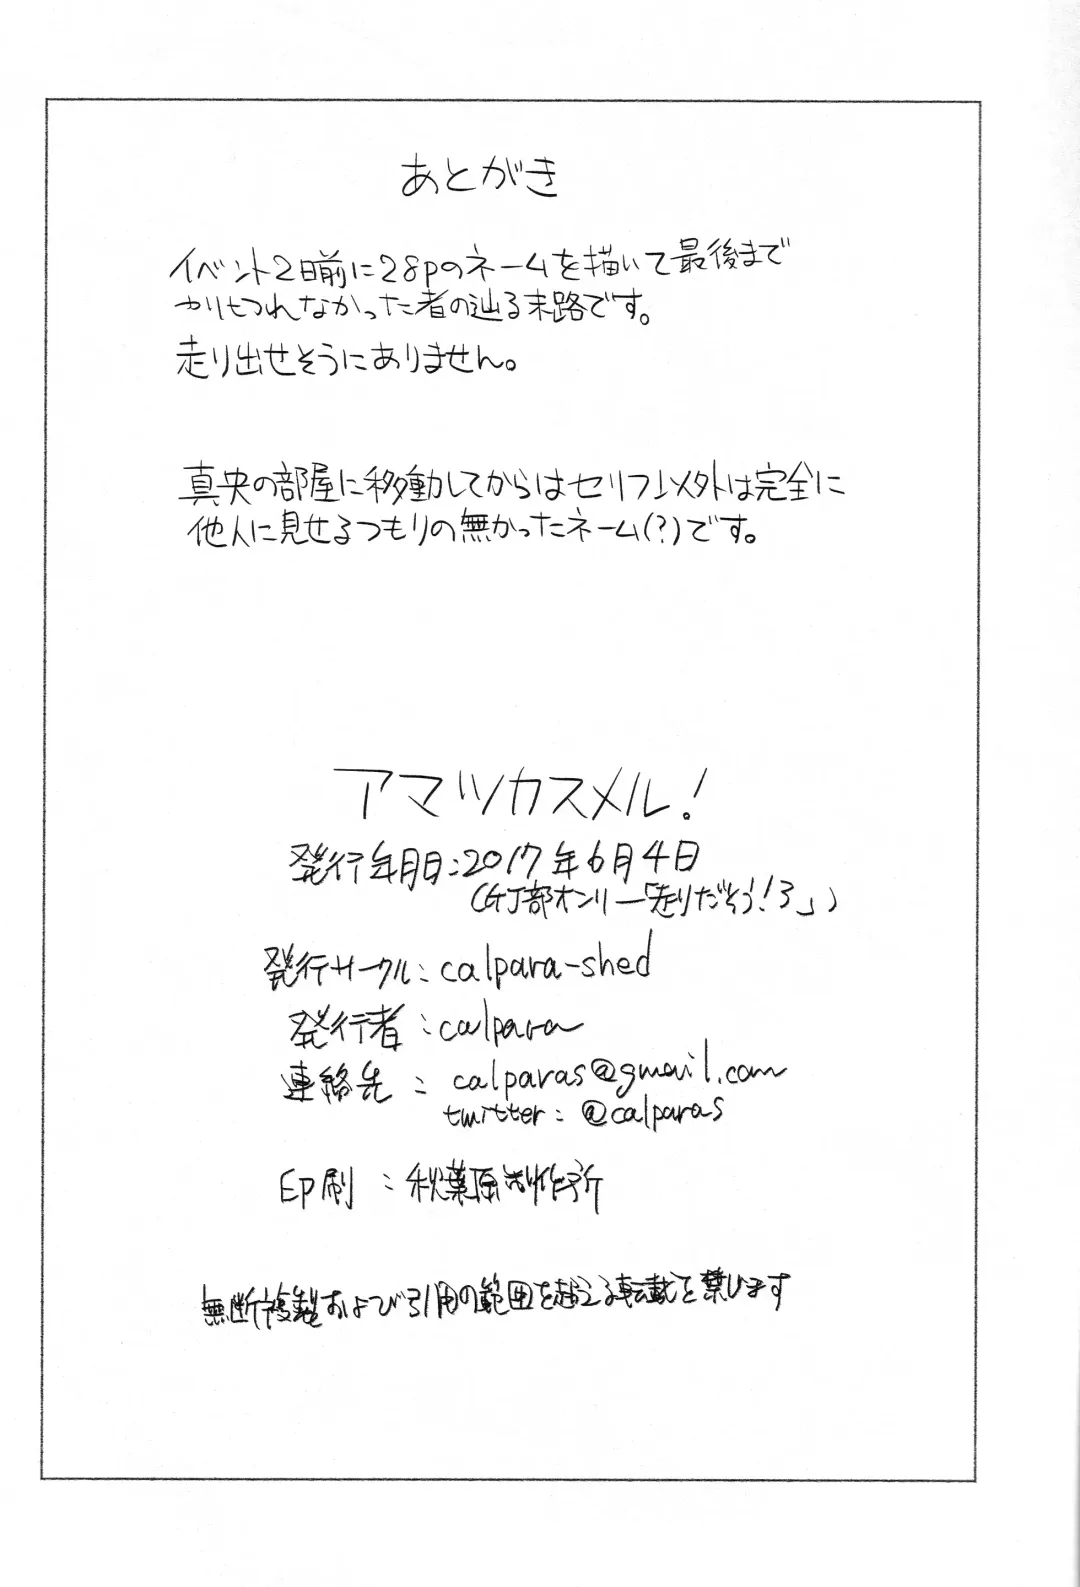 あとがき
イベント2日前に28pのネームを描いて最後まで
やりきれなかった者の辿る末路です。
走り出せそうにありません。
真央の部屋に移動してからはセリフ以外は完全に
他人に見せるつもりの無かったネーム(?)です。
アマツカスメル!
発行年月日:2017年6月4日
(GJ部オンリー「走りだそう!3」)
発行サークル:calpara-shed
発行者:calpara
連絡先:calparas@gmail.com
twitter:@calparas
印刷:秋葉原制作所
無断複製および引用の範囲を超える転載を禁じます